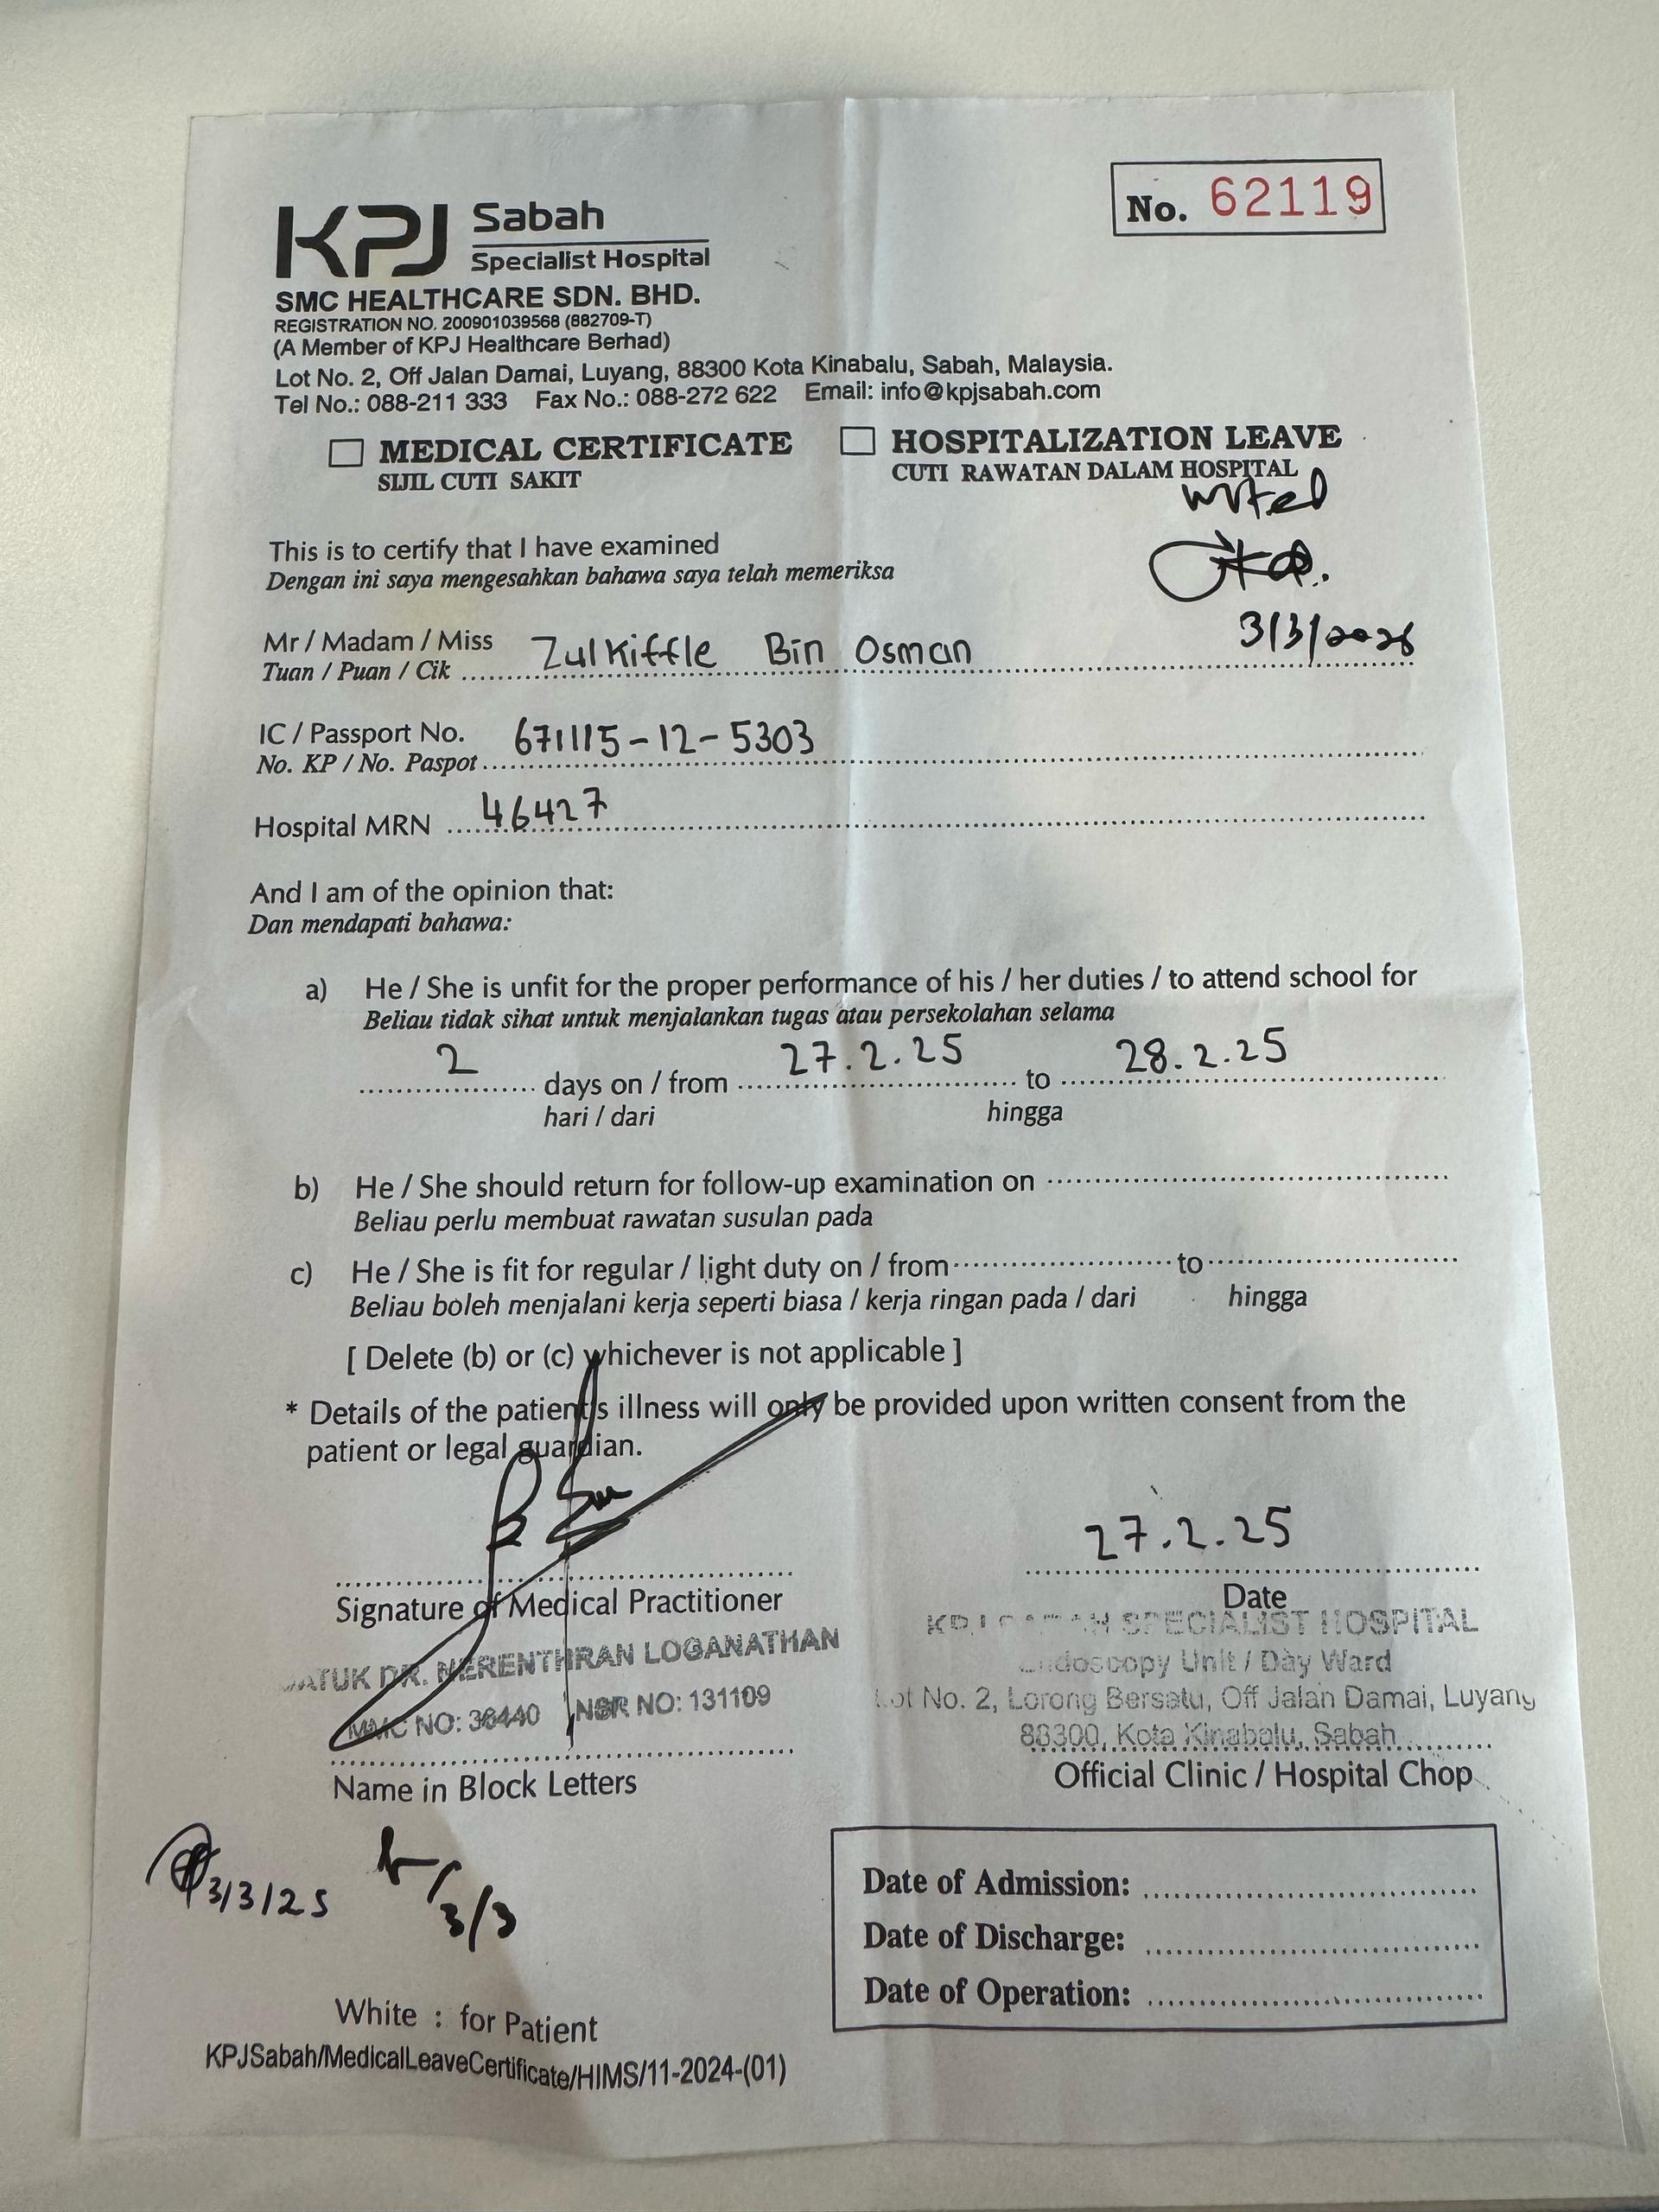 No. 62119
KPJ Sabah
Specialist Hospital
SMC HEALTHCARE SDN. BHD.
REGISTRATION NO. 200901039568 (882709-T)
(A Member of KPJ Healthcare Berhad)
Lot No. 2, Off Jalan Damai, Luyang, 88300 Kota Kinabalu, Sabah, Malaysia.
Tel No.: 088-211 333 Fax No.: 088-272 622 Email: info@kpjsabah.com
MEDICAL CERTIFICATE HOSPITALIZATION LEAVE
SIJIL CUTI SAKIT CUTI RAWATAN DALAM HOSPITAL
This is to certify that I have examined
Dengan ini saya mengesahkan bahawa saya telah memeriksa
Mr / Madam / Miss Zulkiffle Bin Osman
Tuan / Puan / Cik
IC / Passport No. 671115-12-5303
No. KP / No. Paspot
Hospital MRN 46427
And I am of the opinion that:
Dan mendapati bahawa:
a) He / She is unfit for the proper performance of his / her duties / to attend school for
Beliau tidak sihat untuk menjalankan tugas atau persekolahan selama
2 days on / from 27.2.25 to 28.2.25
hari / dari hingga
b) He / She should return for follow-up examination on
Beliau perlu membuat rawatan susulan pada
c) He / She is fit for regular / light duty on / from to
Beliau boleh menjalani kerja seperti biasa / kerja ringan pada / dari hingga
[ Delete (b) or (c) whichever is not applicable ]
* Details of the patient's illness will only be provided upon written consent from the
patient or legal guardian.
27.2.25
Signature of Medical Practitioner Date
DATUK DR. NERENTHRAN LOGANATHAN
MMC NO: 36440 NSR NO: 131109
KPJ SABAH SPECIALIST HOSPITAL
Endoscopy Unit / Day Ward
Lot No. 2, Lorong Bersatu, Off Jalan Damai, Luyang
88300, Kota Kinabalu, Sabah
Name in Block Letters Official Clinic / Hospital Chop
3/3/25 3/3
Date of Admission:
Date of Discharge:
Date of Operation:
White : for Patient
KPJSabah/MedicalLeaveCertificate/HIMS/11-2024-(01)